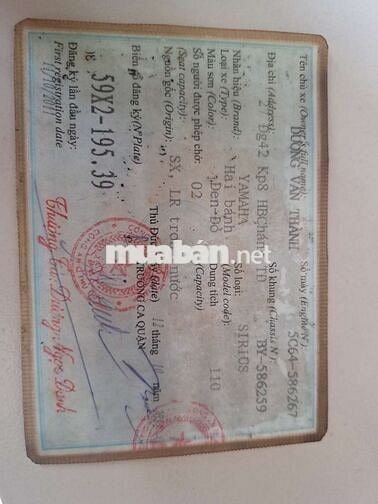 Tên chủ xe (Owner's full name):
DƯƠNG VĂN THÀNH
Địa chỉ (Address):
2 Đg42 Kp8 HBChánh TĐ
Nhãn hiệu (Brand): YAMAHA
Số loại (Model code): SIRIUS
Loại xe (Type): Hai bánh
Màu sơn (Color): Đen-Đỏ
Dung tích (Capacity): 110
Số người được phép chở: 02
(Seat capacity)
Nguồn gốc (Origin): SX, LR trong nước
Số máy (Engine N°): 5C64-586267
Số khung (Chassis N°): BY-586259
Biển số đăng ký (N° Plate)
59X2-195.39
Đăng ký lần đầu ngày:
First registration date
Thủ Đức, ngày (date) 12 tháng 10 năm
TRƯỞNG CA QUẬN
Thượng tá: Dương Ngọc Danh
chợTỐT